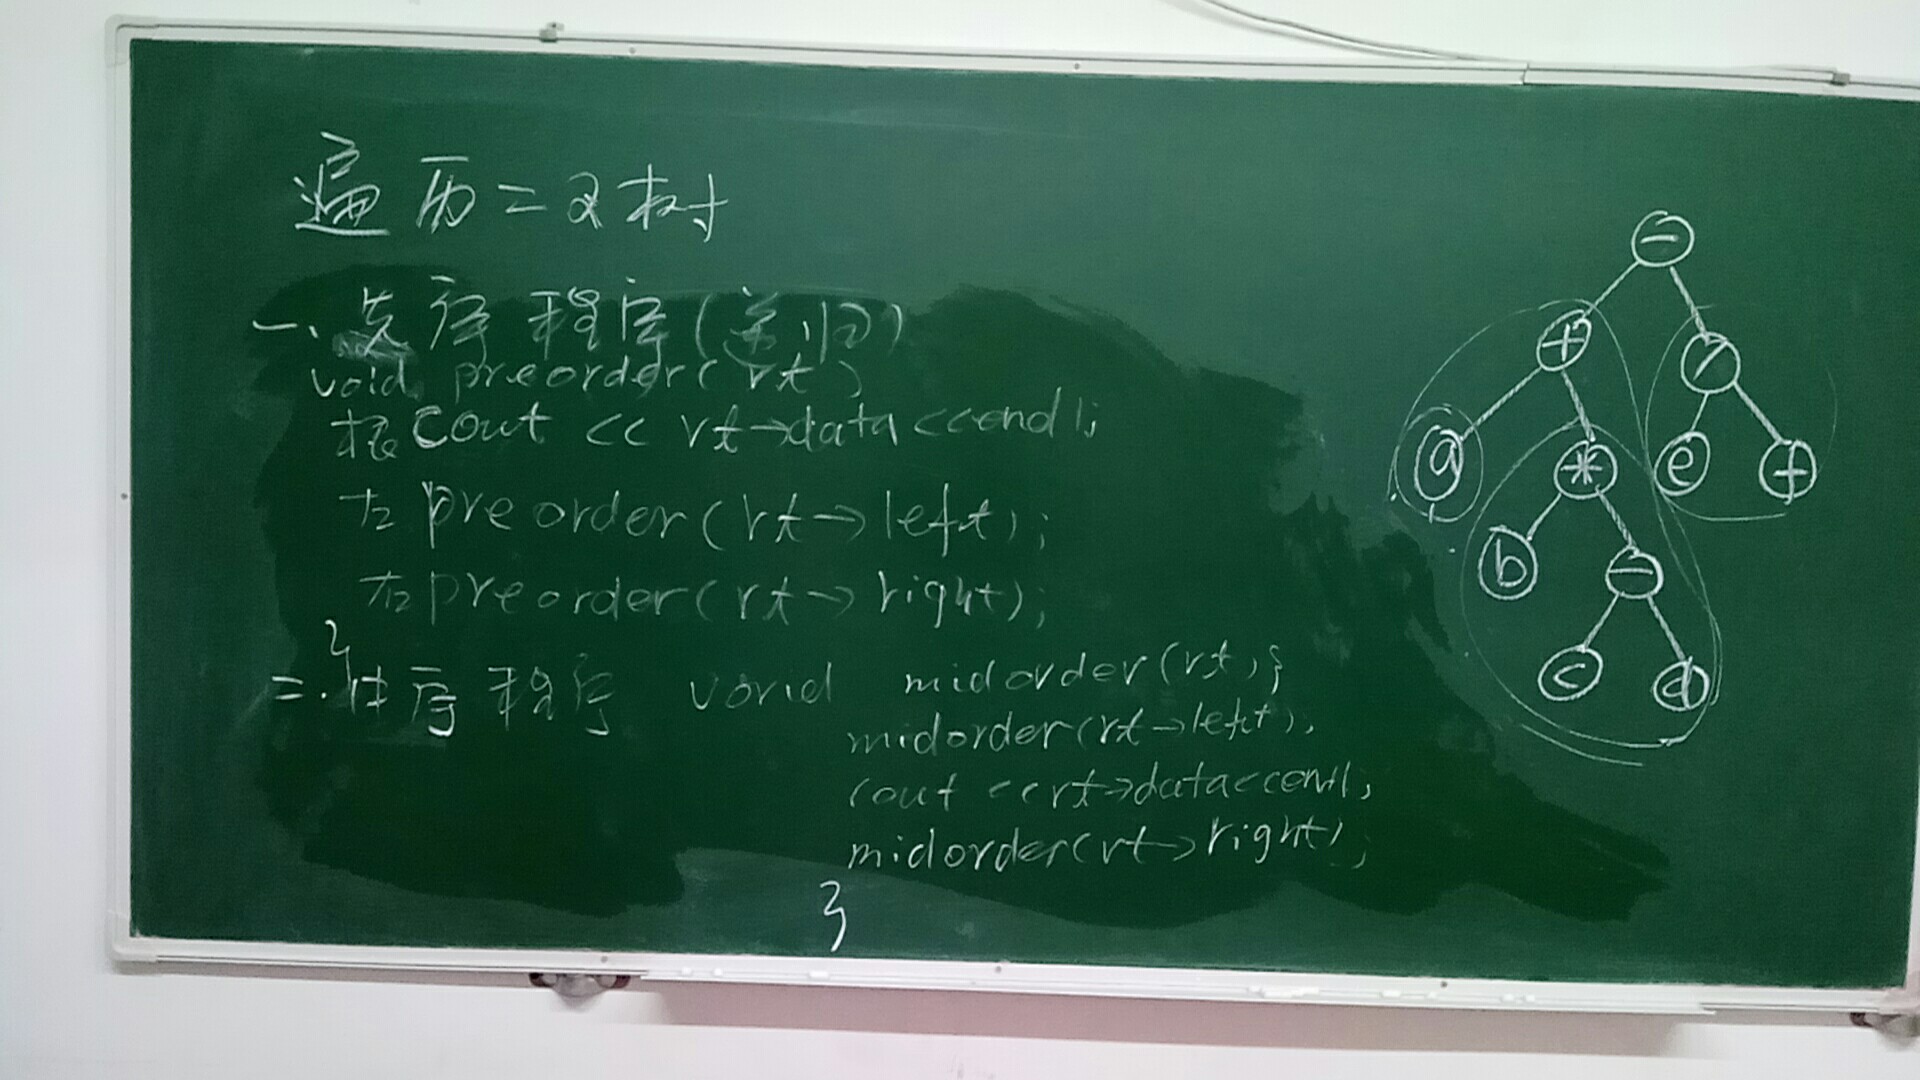 遍历二叉树
一、先序程序(递归)
void preorder(rt)
根 cout << rt->data <<endl;
左 preorder(rt->left);
右 preorder(rt->right);
}
二.中序程序 void midorder(rt){
midorder(rt->left);
cout <<rt->data<<endl;
midorder(rt->right);
}
-
+ /
a * e f
b -
c d